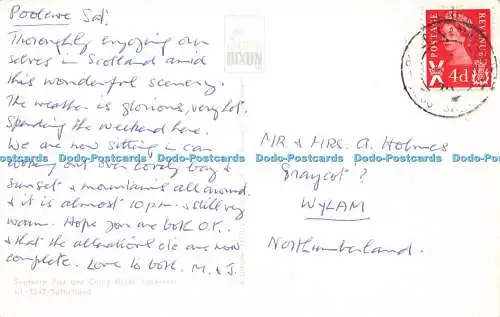 Poolewe Sat.
Thoroughly enjoying our
selves in Scotland amid
this wonderful scenery.
The weather is glorious, very hot.
Spending the weekend here.
We are now sitting in car
looking out over lovely bay &
sunset & mountains all around
& it is almost 10 p.m. & still very
warm. Hope you are both O.K.
& that the alterations etc are now
complete. Love to both. M. & J.
DIXON
POSTAGE
REVENUE
4d
MR & MRS. A. Holmes
Graycot?
WYLAM
Northumberland.
Dodo-Postcards Dodo-Postcards Dodo-Postcards Dodo-Postcards Dodo-Postcards Dodo-Postcards